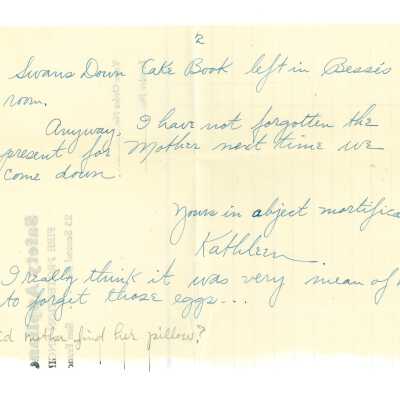 2
Swans Down Cake Book left in Bessie's
room.
Anyway, I have not forgotten the
present for Mother next time we
come down.
Yours in abject mortifica
Kathleen
I really think it was very mean of
to forget those eggs...
id mother find her pillow?